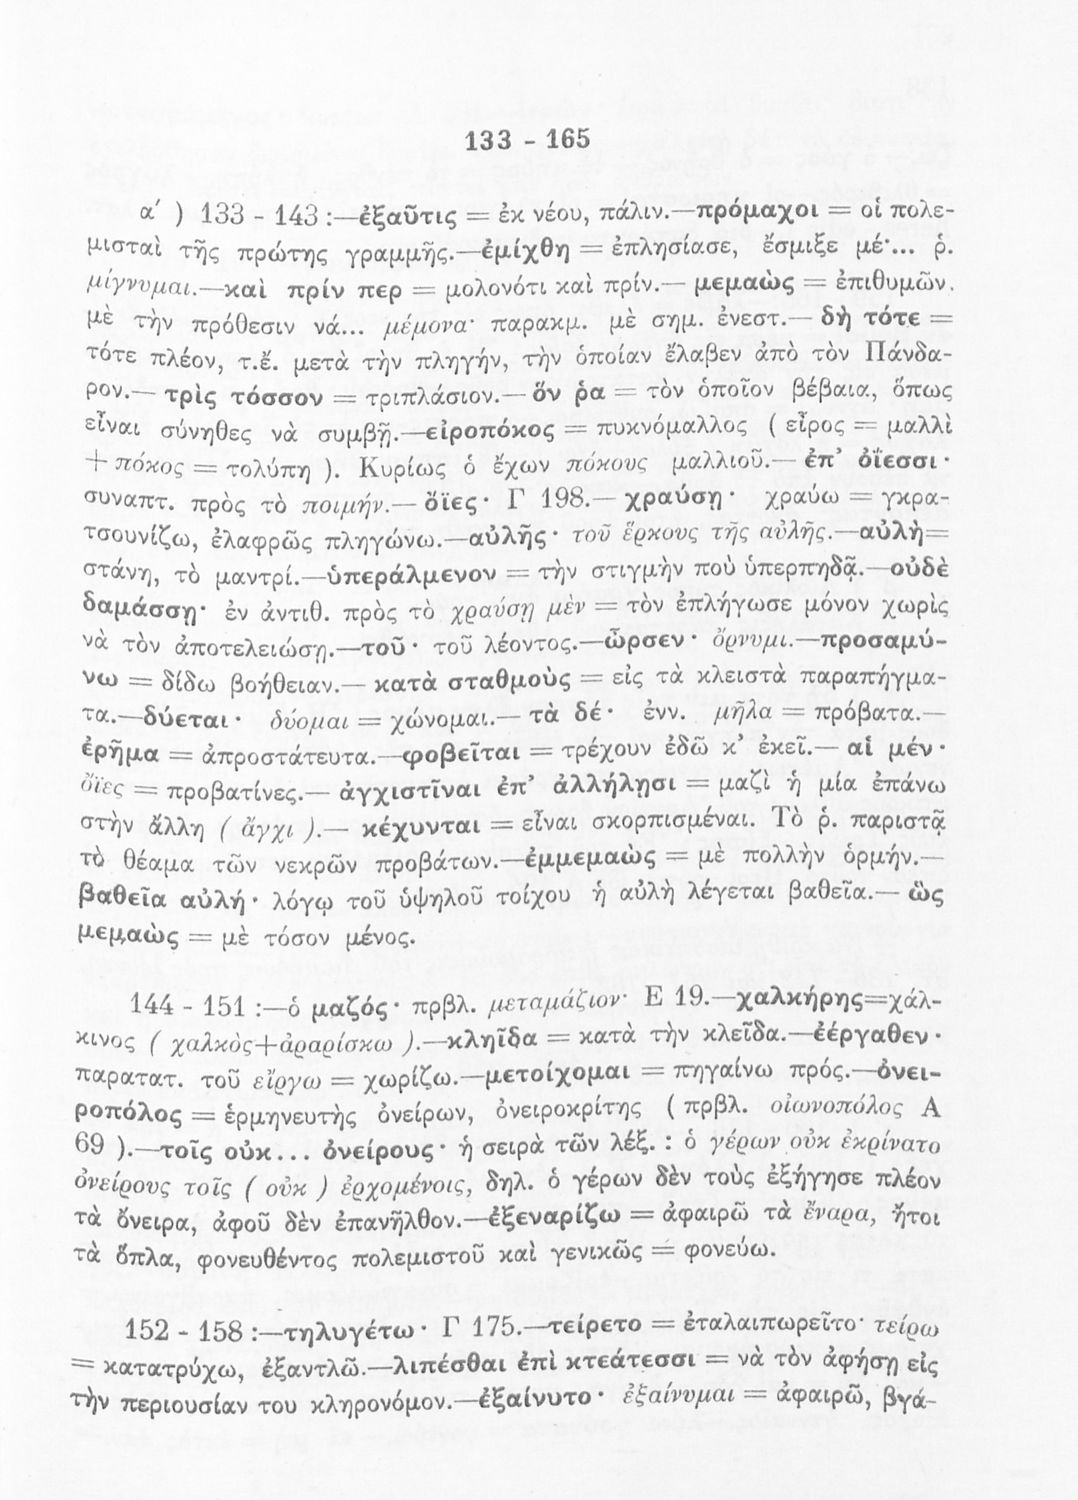 133 - 165
α΄ ) 133 - 143 :—ἐξαῦτις = ἐκ νέου, πάλιν.—πρόμαχοι = οἱ πολε-
μισταὶ τῆς πρώτης γραμμῆς.—ἐμίχθη = ἐπλησίασε, ἔσμιξε μέ·... ῥ.
μίγνυμαι.—καὶ πρίν περ = μολονότι καὶ πρίν.— μεμαὼς = ἐπιθυμῶν.
μὲ τὴν πρόθεσιν νά... μέμονα· παρακμ. μὲ σημ. ἐνεστ.— δὴ τότε =
τότε πλέον, τ.ἔ. μετὰ τὴν πληγήν, τὴν ὁποίαν ἔλαβεν ἀπὸ τὸν Πάνδα-
ρον.— τρὶς τόσσον = τριπλάσιον.— ὅν ῥα = τὸν ὁποῖον βέβαια, ὅπως
εἶναι σύνηθες νὰ συμβῇ.—εἰροπόκος = πυκνόμαλλος ( εἶρος = μαλλὶ
+ πόκος = τολύπη ). Κυρίως ὁ ἔχων πόκους μαλλιοῦ.— ἐπ' ὀΐεσσι ·
συναπτ. πρὸς τὸ ποιμήν.— ὄϊες · Γ 198.— χραύσῃ · χραύω = γκρα-
τσουνίζω, ἐλαφρῶς πληγώνω.—αὐλῆς · τοῦ ἕρκους τῆς αὐλῆς.—αὐλὴ=
στάνη, τὸ μαντρί.—ὑπεράλμενον = τὴν στιγμὴν ποὺ ὑπερπηδᾷ.—οὐδὲ
δαμάσσῃ· ἐν ἀντιθ. πρὸς τὸ χραύσῃ μὲν = τὸν ἐπλήγωσε μόνον χωρὶς
νὰ τὸν ἀποτελειώσῃ.—τοῦ · τοῦ λέοντος.—ὦρσεν · ὄρνυμι.—προσαμύ-
νω = δίδω βοήθειαν.— κατὰ σταθμοὺς = εἰς τὰ κλειστὰ παραπήγμα-
τα.—δύεται · δύομαι = χώνομαι.— τὰ δέ · ἐνν. μῆλα = πρόβατα.—
ἐρῆμα = ἀπροστάτευτα.—φοβεῖται = τρέχουν ἐδῶ κ' ἐκεῖ.— αἱ μέν ·
ὄϊες = προβατίνες.— ἀγχιστῖναι ἐπ' ἀλλήλῃσι = μαζὶ ἡ μία ἐπάνω
στὴν ἄλλη ( ἄγχι ).— κέχυνται = εἶναι σκορπισμέναι. Τὸ ῥ. παριστᾷ
τὸ θέαμα τῶν νεκρῶν προβάτων.—ἐμμεμαὼς = μὲ πολλὴν ὁρμήν.—
βαθεῖα αὐλή · λόγῳ τοῦ ὑψηλοῦ τοίχου ἡ αὐλὴ λέγεται βαθεῖα.— ὣς
μεμαὼς = μὲ τόσον μένος.
144 - 151 :—ὁ μαζός · πρβλ. μεταμάζιον· Ε 19.—χαλκήρης=χάλ-
κινος ( χαλκὸς+ἀραρίσκω ).—κληῖδα = κατὰ τὴν κλεῖδα.—ἐέργαθεν ·
παρατατ. τοῦ εἴργω = χωρίζω.—μετοίχομαι = πηγαίνω πρός.—ὀνει-
ροπόλος = ἑρμηνευτὴς ὀνείρων, ὀνειροκρίτης ( πρβλ. οἰωνοπόλος Α
69 ).—τοῖς οὐκ... ὀνείρους · ἡ σειρὰ τῶν λέξ. : ὁ γέρων οὐκ ἐκρίνατο
ὀνείρους τοῖς ( οὐκ ) ἐρχομένοις, δηλ. ὁ γέρων δὲν τοὺς ἐξήγησε πλέον
τὰ ὄνειρα, ἀφοῦ δὲν ἐπανῆλθον.—ἐξεναρίζω = ἀφαιρῶ τὰ ἔναρα, ἤτοι
τὰ ὅπλα, φονευθέντος πολεμιστοῦ καὶ γενικῶς = φονεύω.
152 - 158 :—τηλυγέτω · Γ 175.—τείρετο = ἐταλαιπωρεῖτο· τείρω
= κατατρύχω, ἐξαντλῶ.—λιπέσθαι ἐπὶ κτεάτεσσι = νὰ τὸν ἀφήσῃ εἰς
τὴν περιουσίαν του κληρονόμον.—ἐξαίνυτο · ἐξαίνυμαι = ἀφαιρῶ, βγά-